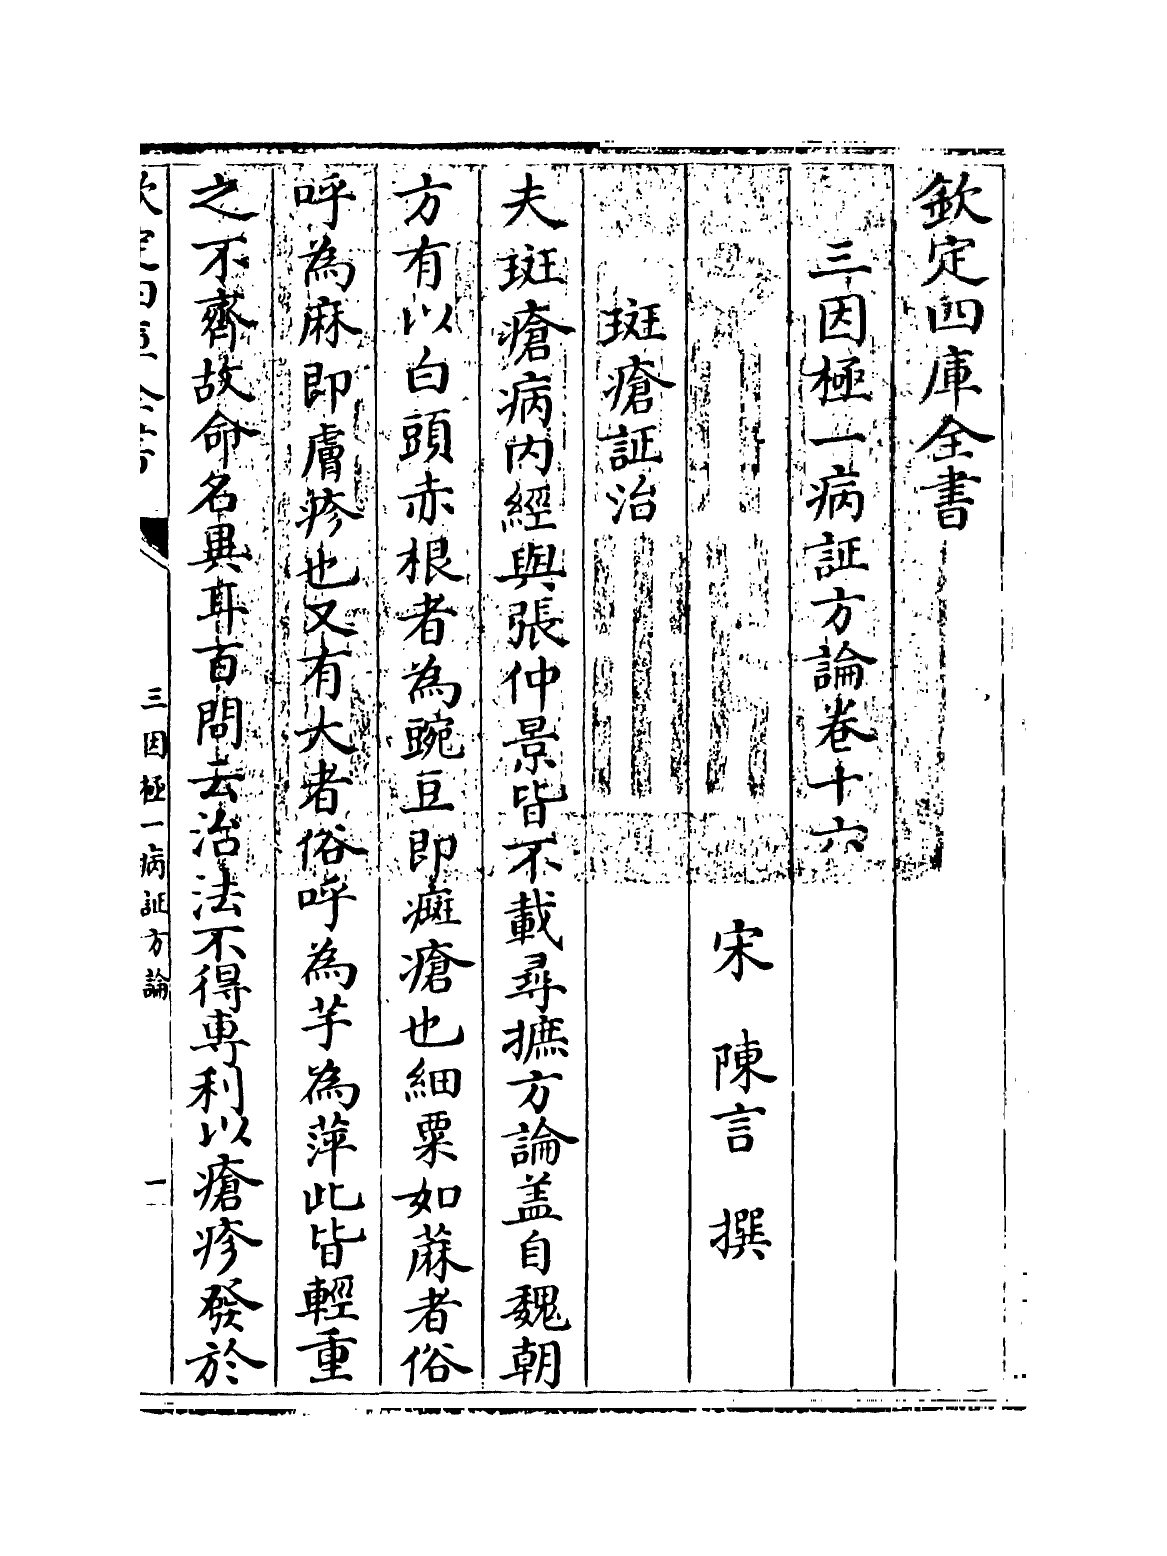 欽定四庫全書
三因極一病証方論卷十六
宋 陳言 撰
斑瘡証治
夫斑瘡病内經與張仲景皆不載尋摭方論盖自魏朝
方有以白頭赤根者為豌豆即癍瘡也細粟如蔴者俗
呼為麻即膚疹也又有大者俗呼為芋為萍此皆輕重
之不齊故命名異耳百問云治法不得專利以瘡疹發於
欽定四庫全書
三因極一病証方論
一